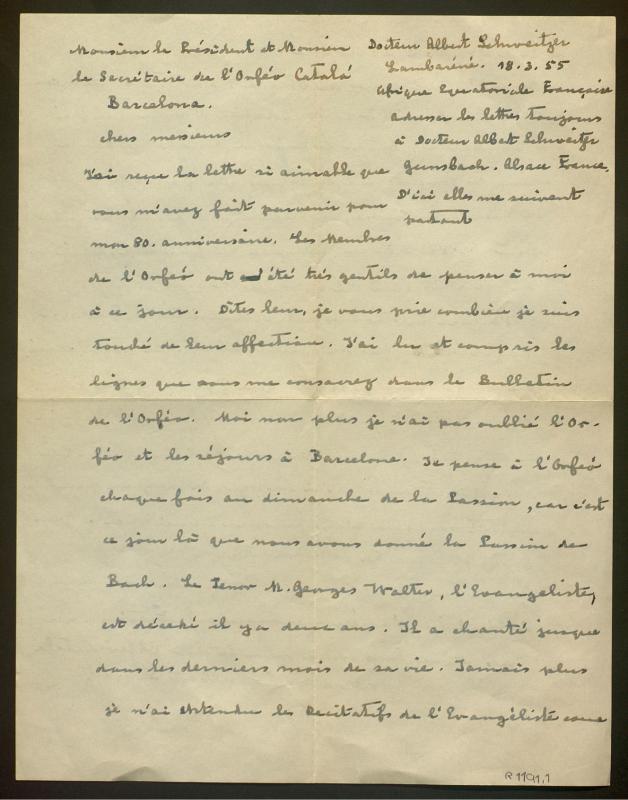 Monsieur le Président et Monsieur
le Secrétaire de l'Orféo Catalá
Barcelona.
chers messieurs
Docteur Albert Schweitzer
Lambaréné. 18.3.55
Afrique Equatoriale Française
adresser les lettres toujours
à Docteur Albert Schweitzer
Gunsbach. Alsace France.
D'ici elles me suivent
partout
J'ai reçue la lettre si aimable que
vous m'avez fait parvenir pour
mon 80. anniversaire. Les Membres
de l'Orfeó ont été très gentils de penser à moi
à ce jour. Dites leur, je vous prie combien je suis
touché de leur affection. J'ai lu et compris les
lignes que vous me consacrez dans le Bulletin
de l'Orféo. Moi non plus je n'ai pas oublié l'Or-
féo et les séjours à Barcelone. Je pense à l'Orfeó
chaque fois au dimanche de la Passion, car c'est
ce jour là que nous avons donné la Passion de
Bach. Le Tenor M. Georges Walter, l'Evangeliste,
est décedé il y a deux ans. Il a chanté jusque
dans les derniers mois de sa vie. Jamais plus
je n'ai entendu les Recitatifs de l'Evangéliste
R 1191,1